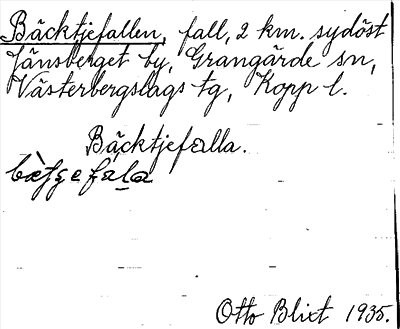 Bäcktjefallen, fall, 2 km. sydöst
Jänsberget by, Grangärde sn,
Västerbergslags tg, Kopp l.
Bäcktjefalla.
Otto Blixt 1935.